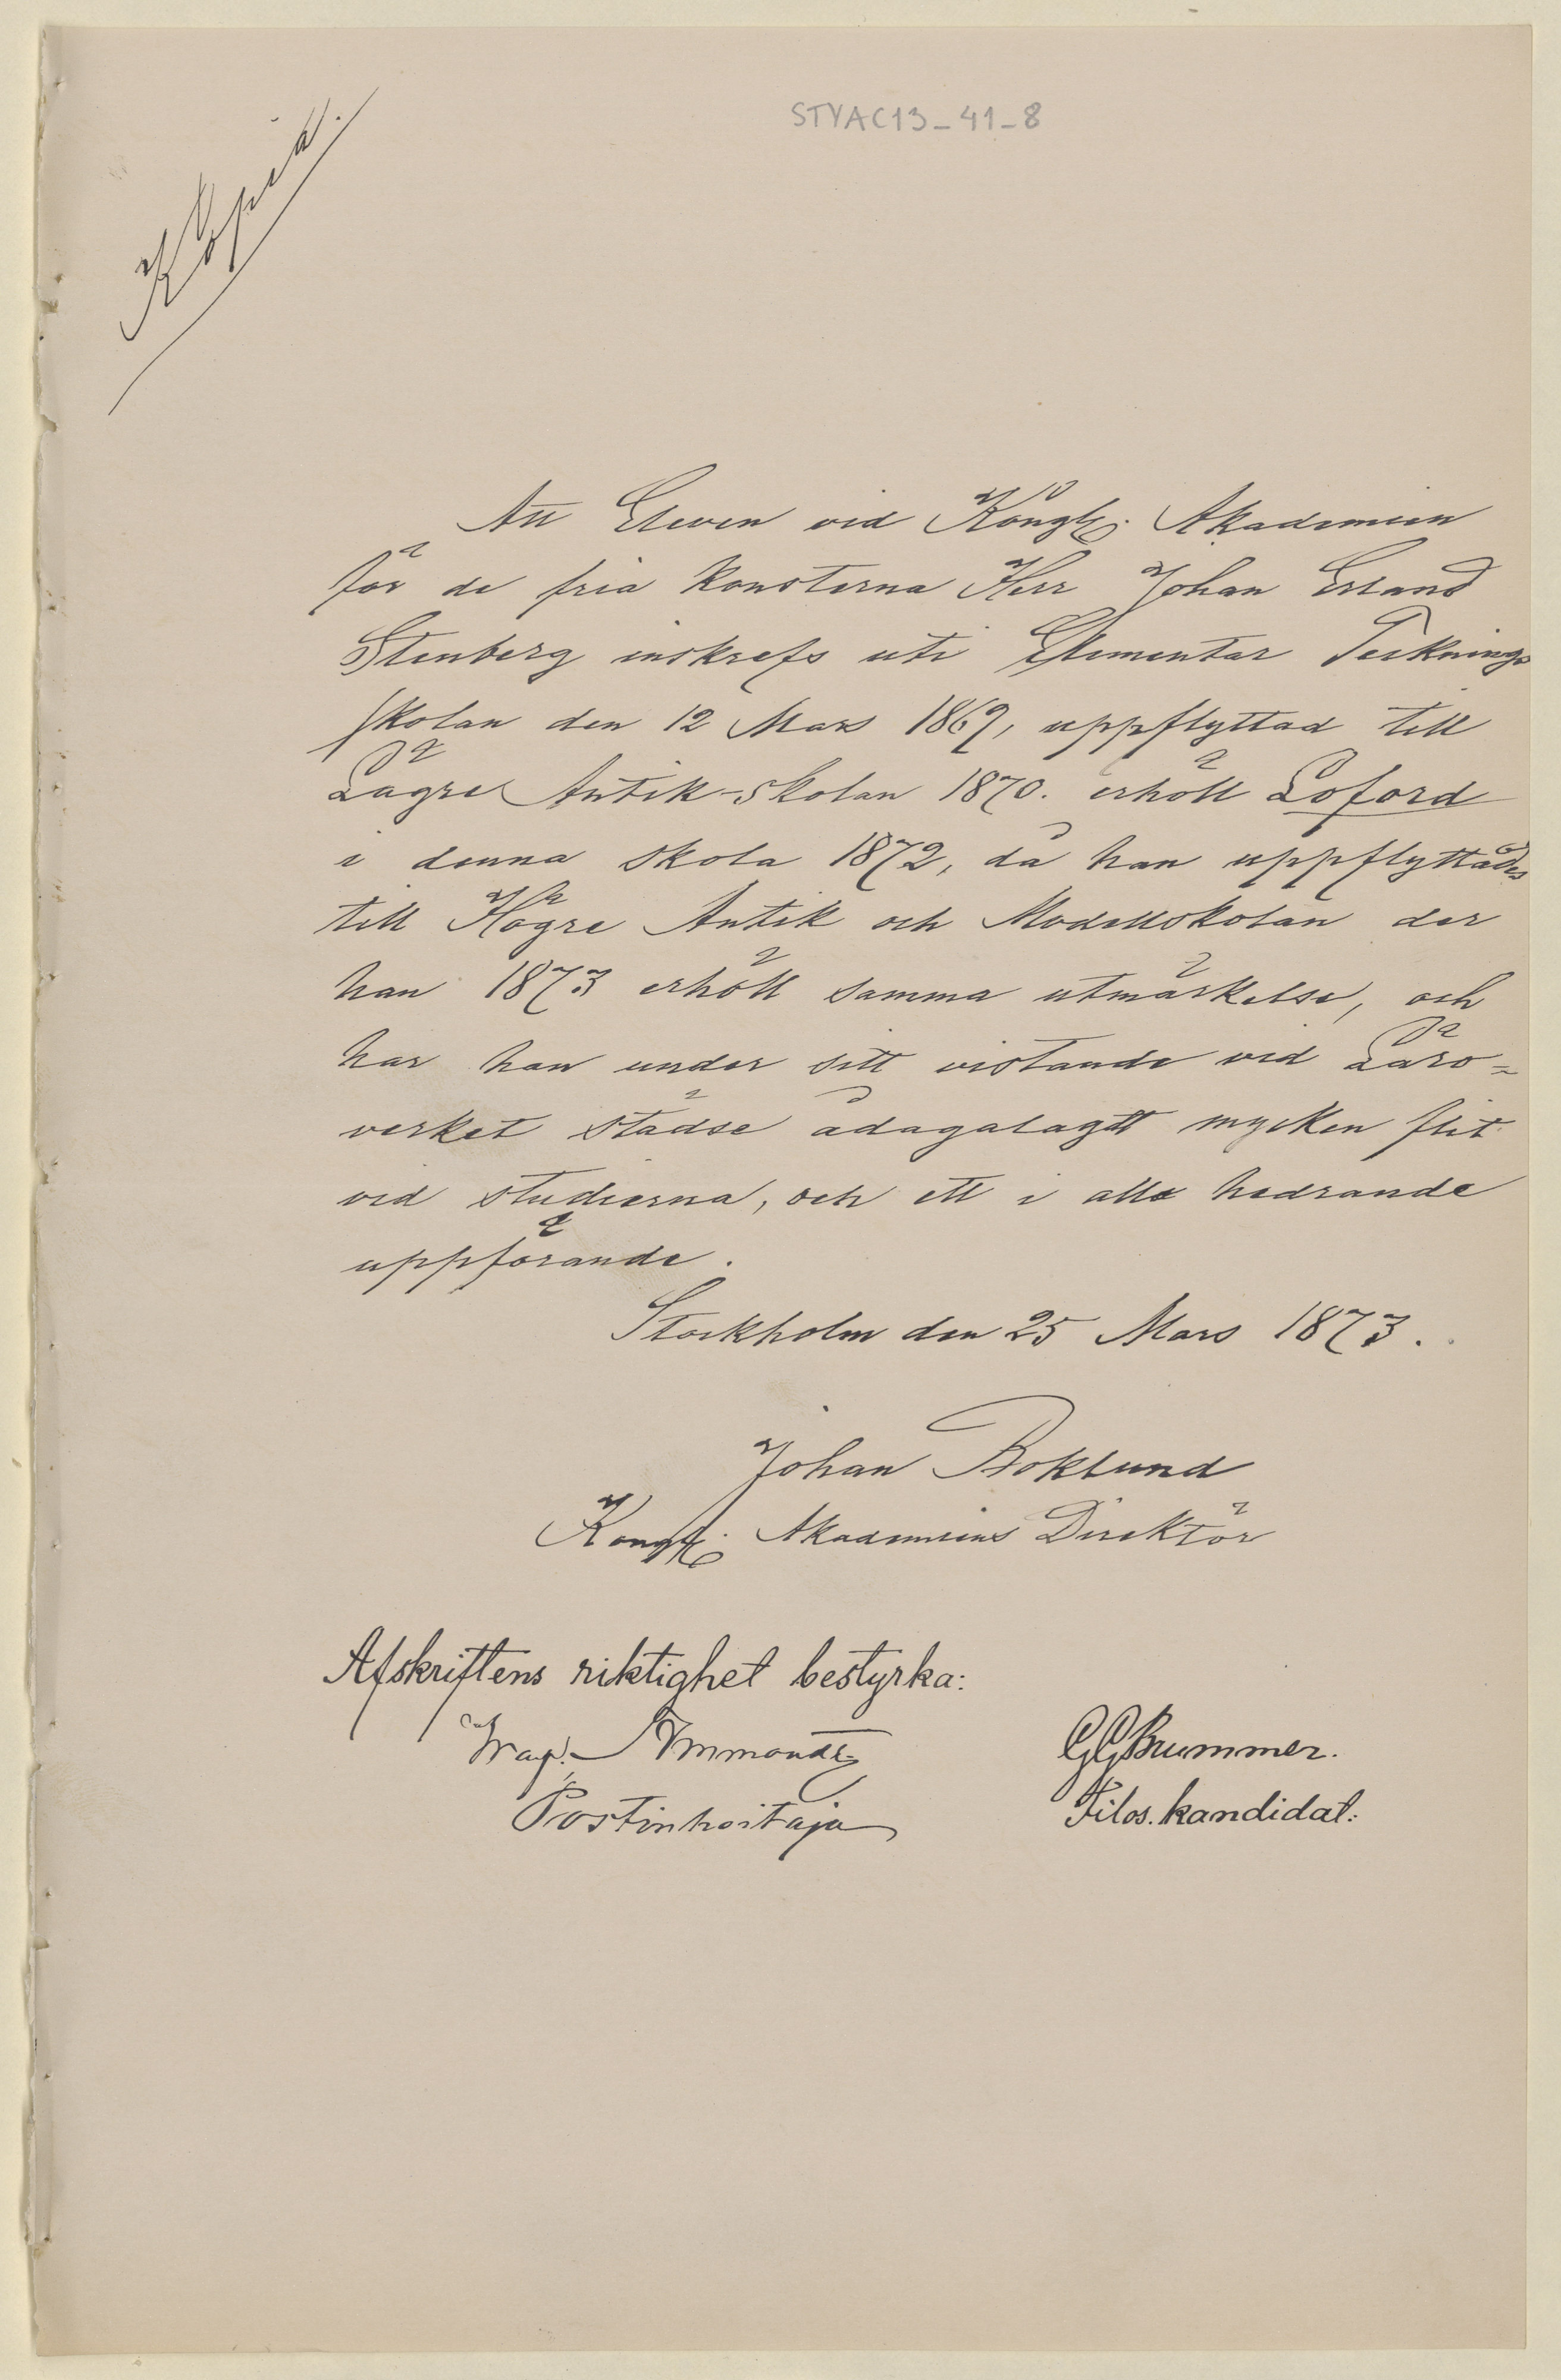 STYAC13-41-8
Kopia.
Att Eleven vid Kongl. Akademien
för de fria Konsterna Herr Johan Erland
Stenberg inskrefs uti Elementar Tecknings
skolan den 12 Mars 1869, uppflyttad till
Lägre Antik-skolan 1870. erhöll Loford
i denna skola 1872, då han uppflyttades
till Högre Antik och Modellskolan der
han 1873 erhöll samma utmärkelse, och
har han under sitt vistande vid Läro=
verket städse ådagalagtt mycken flit
vid studierna, och ett i allo hedrande
uppförande.
Stockholm den 25 Mars 1873.
Johan Boklund
Kongl. Akademiens Direktör
Afskriftens riktighet bestyrka:
Ammondt
GGBrummer.
Postinhoitaja
Filos. kandidat: